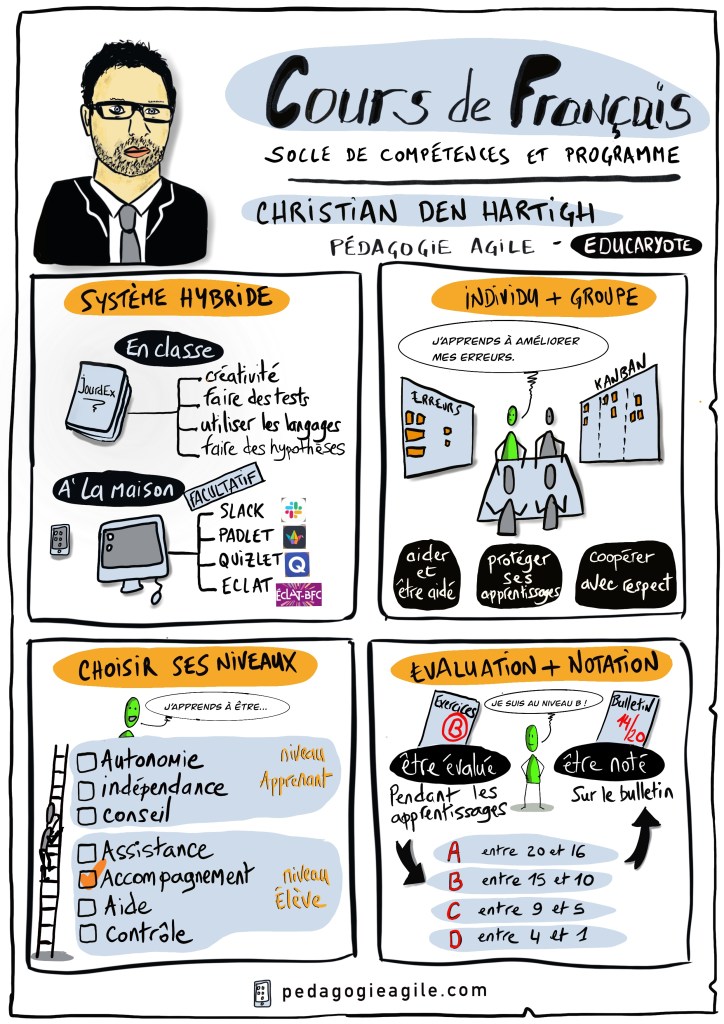 Cours de Français
SOCLE DE COMPÉTENCES ET PROGRAMME
CHRISTIAN DEN HARTIGH
PÉDAGOGIE AGILE - EDUCARYOTE
SYSTÈME HYBRIDE
En classe
JourdEx
?
créativité
faire des tests
utiliser les langages
faire des hypothèses
À La Maison
FACULTATIF
SLACK
PADLET
QUIZLET
Q
ECLAT
ÉCLAT-BFC
INDIVIDU + GROUPE
J'APPRENDS À AMÉLIORER
MES ERREURS.
ERREURS
KANBAN
aider
et
être aidé
protéger
ses
apprentissages
coopérer
avec respect
CHOISIR SES NIVEAUX
J'APPRENDS À ÊTRE...
Autonomie
indépendance
conseil
niveau
Apprenant
Assistance
Accompagnement
Aide
Contrôle
niveau
Élève
EVALUATION + NOTATION
Exercices
B
JE SUIS AU NIVEAU B !
Bulletin
14/20
être évalué
Pendant les
apprentissages
être noté
Sur le bulletin
A entre 20 et 16
B entre 15 et 10
C entre 9 et 5
D entre 4 et 1
pedagogieagile.com